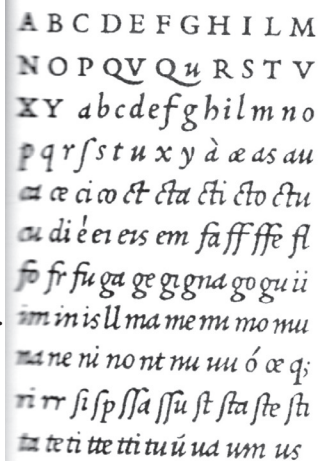 A B C D E F G H I L M
N O P QV Qu R S T V
X Y a b c d e f g h i l m n o
p q r ſ s t u x y à æ as au
ca ce ci co ct cta cti cto ctu
cu di é ei eis em fa ff ffe fl
fo fr fu ga ge gi gna go gu ii
im in is ll ma me mi mo mu
na ne ni no nt nu uu ó œ q;
ri rr ſi ſp ſſa ſſu ſt ſta ſte ſti
ta te ti tte tti tu ú ua um us